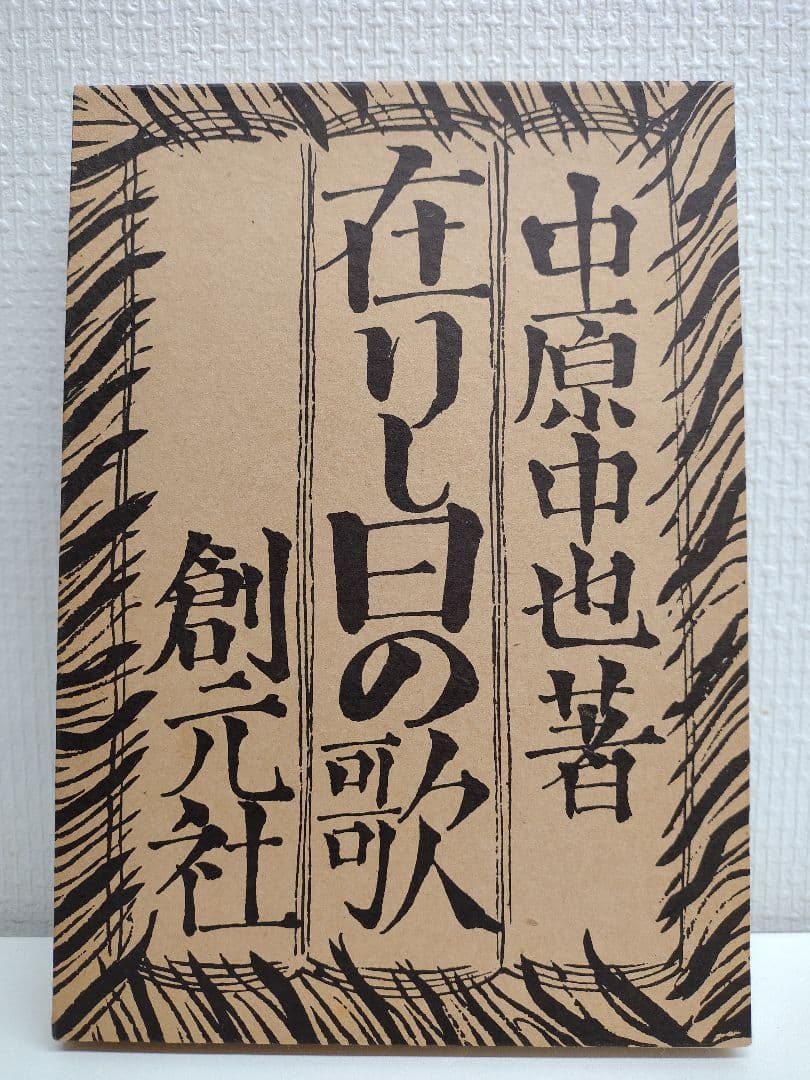 中原中也著
在りし日の歌
創元社